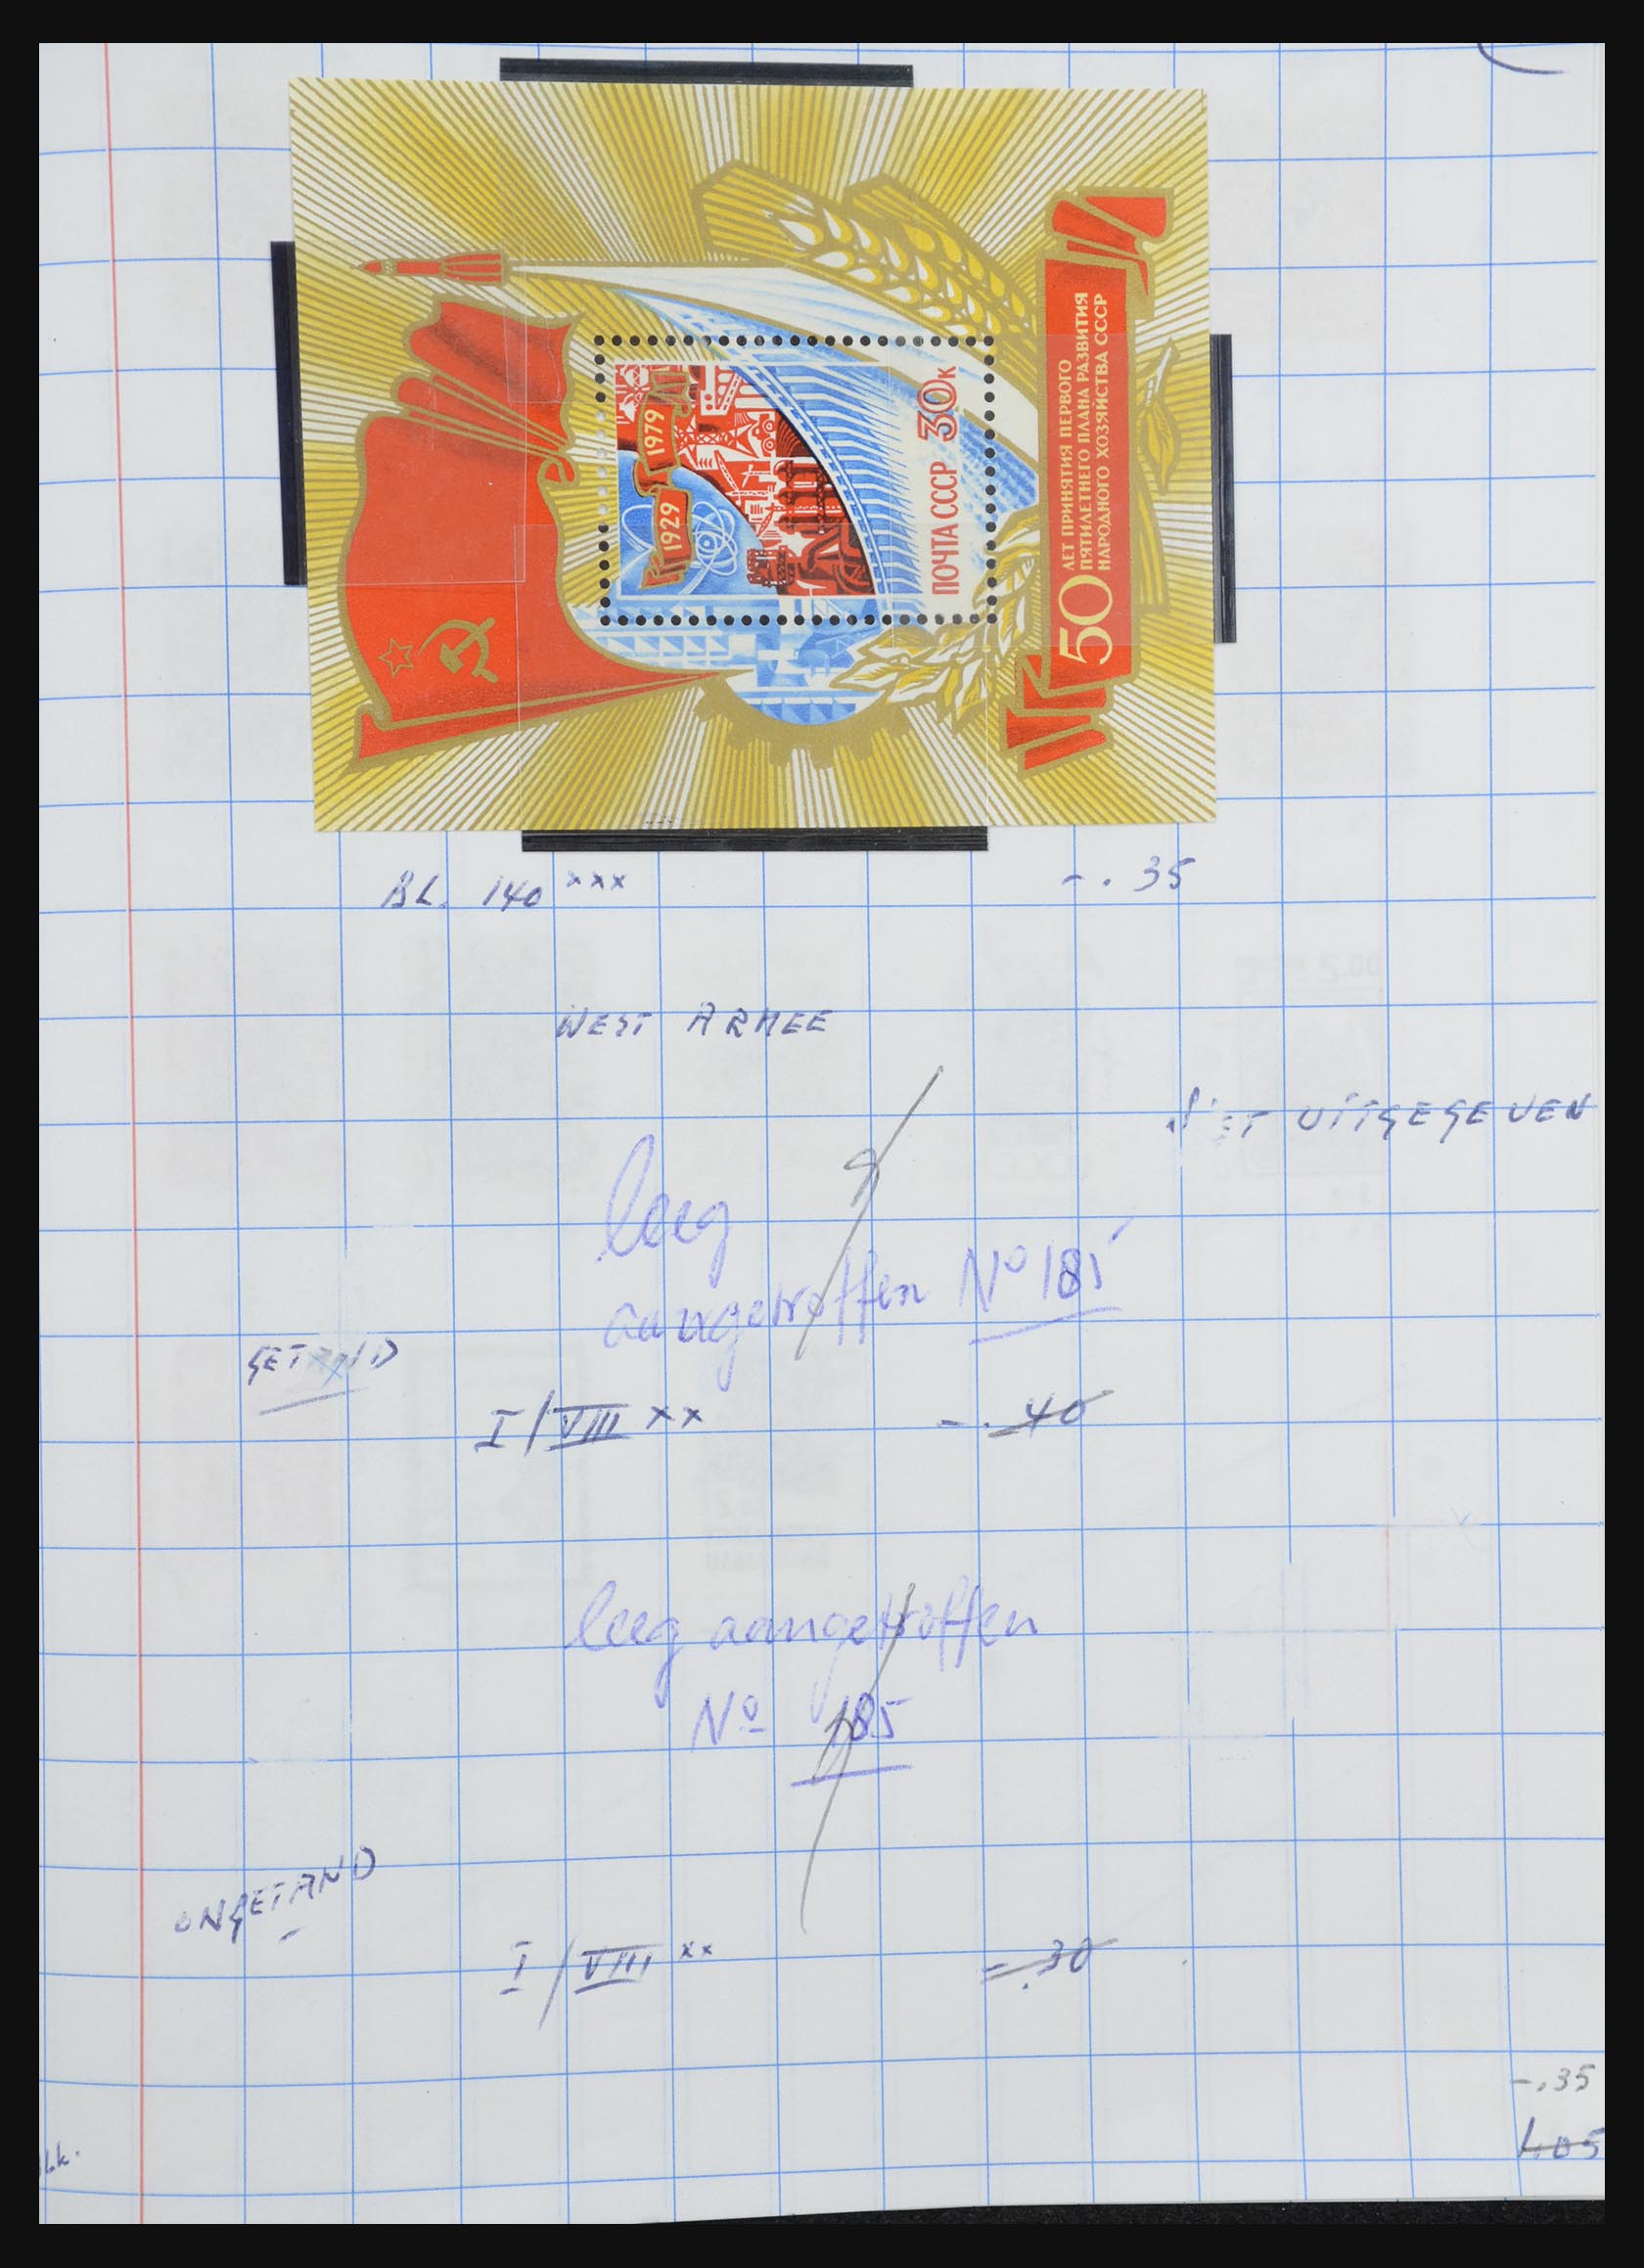 1929 1979
ПОЧТА СССР 30к
50 ЛЕТ ПРИНЯТИЯ ПЕРВОГО
ПЯТИЛЕТНЕГО ПЛАНА РАЗВИТИЯ
НАРОДНОГО ХОЗЯЙСТВА СССР
BL. 140 xxx -.35
WEST ARMEE
NIET UITGEGEVEN
leeg
aangetroffen No 185
GETAND
I/VIII xx -.40
leeg aangetroffen
No 185
ONGETAND
I/VIII xx -.30
-.35
1.05